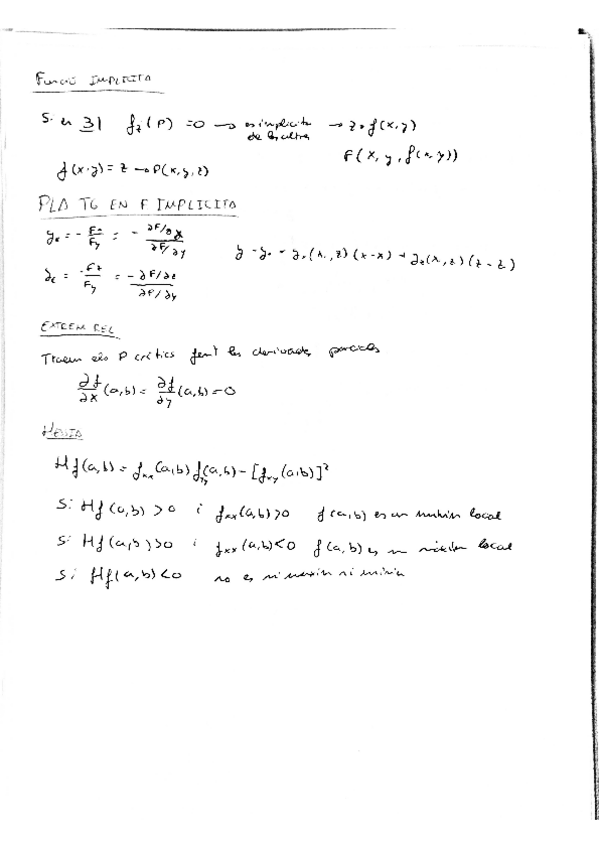 Funció IMPLICITA
Si en 31 f_z(P) = 0 → es implicita de les altres → z = f(x,y)
F(x, y, f(x,y))
f(x·y) = z → P(x, y, z)
PLA TG EN F IMPLICITA
y_x = - F_x / F_y = - ∂F/∂x / ∂F/∂y
y - y₀ = y_x(x₀, z)(x - x) + y_z(x, z)(z - z)
y_z = -F_z / F_y = -∂F/∂z / ∂F/∂y
EXTREM REL
Traiem els P crítics fent les derivades parcials
∂f/∂x (a,b) = ∂f/∂y (a,b) = 0
HESSIA
Hf(a,b) = f_xx(a,b) f_yy(a,b) - [f_xy(a,b)]²
Si Hf(a,b) > 0 i f_xx(a,b) > 0 f(a,b) es un minim local
Si Hf(a,b) > 0 i f_xx(a,b) < 0 f(a,b) es un màxim local
Si Hf(a,b) < 0 no es ni maxim ni minim